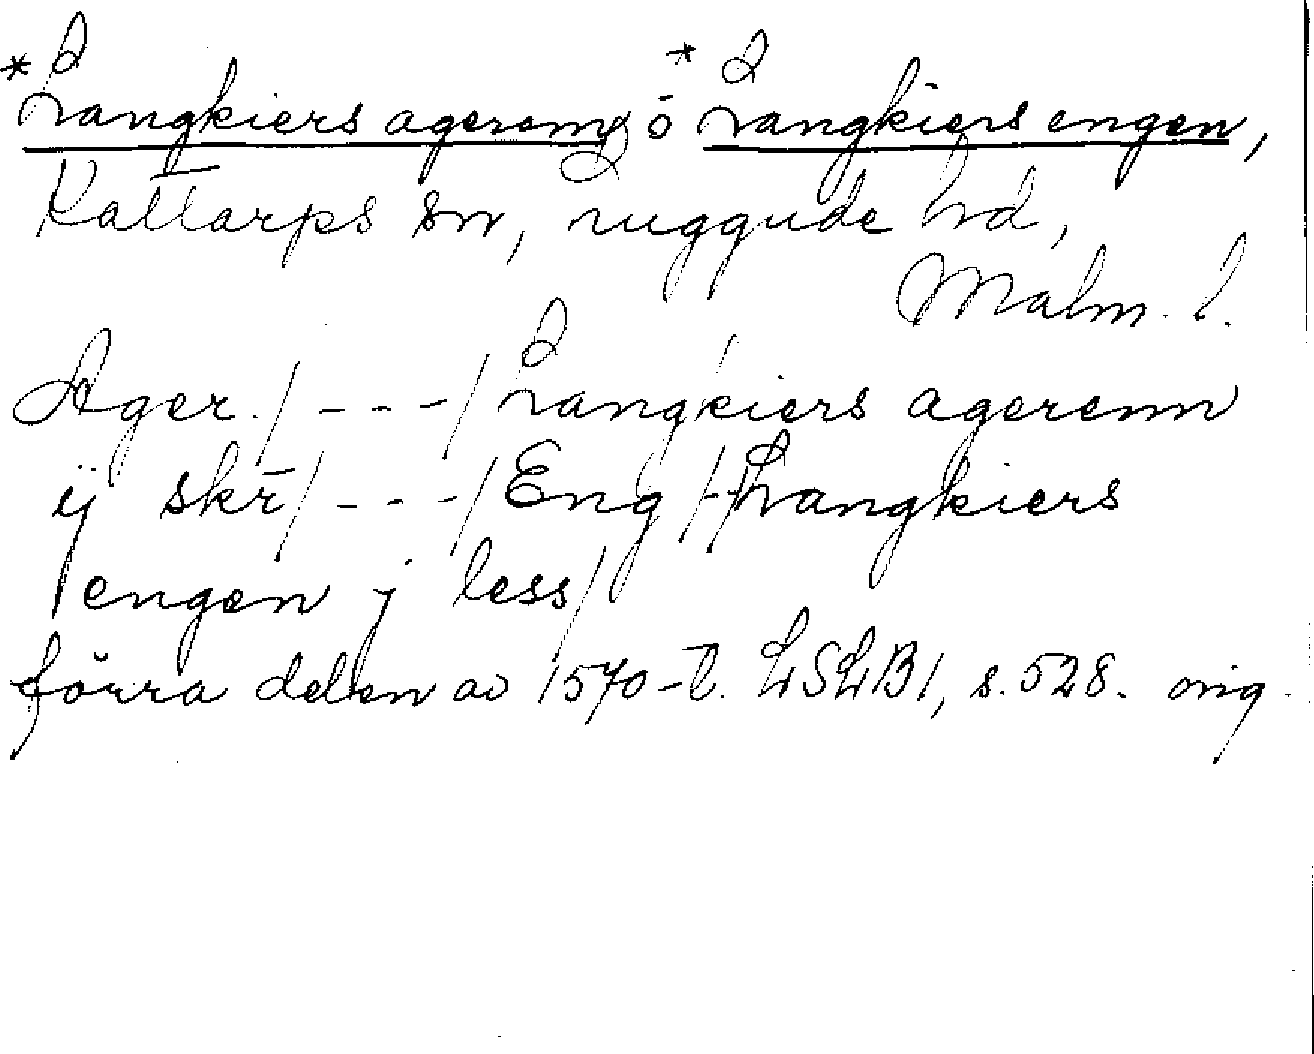 *Langkiers agerenn o *Langkiers engen,
Kattarps sn, Luggude hd,
Malm. l.
Ager./---/Langkiers agerenn
ij skr̄/---/Eng/-/Langkiers
engen j less/
förra delen av 1570-t. LSLB1, s. 528. orig.